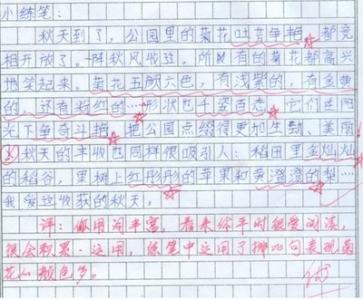 小练笔：
秋天到了，公园里的菊花吐芳争艳，都竞
相开放了。一阵秋风吹过，所有的菊花都高兴
地笑起来。菊花五颜六色，有浅紫的，有金黄
的，还有粉红的……形状也千姿百态。它们在阳
光下争奇斗艳，把公园点缀得更加生动、美丽
秋天的丰收也同样很吸引人：稻田里金灿灿
的稻谷，果树上红彤彤的苹果和黄澄澄的梨……
我爱这收获的秋天。
评：你用词丰富，看来你平时很爱阅读，
很会积累·运用，练笔中运用了排比句表现菊
花的颜色多。